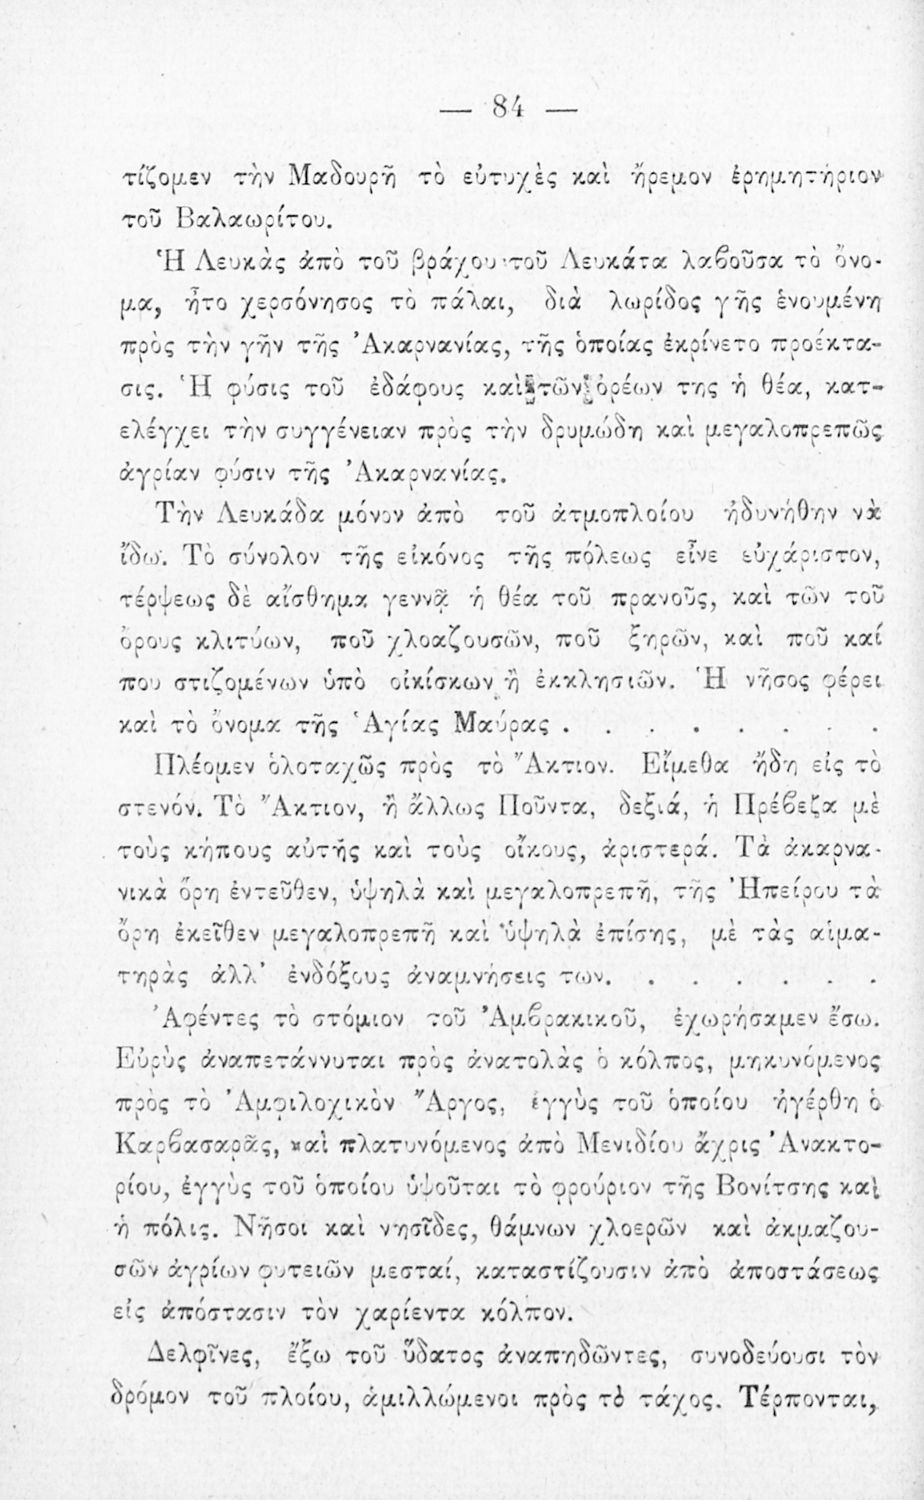 — 84 —
τίζομεν τὴν Μαδουρῆ τὸ εὐτυχὲς καὶ ἤρεμον ἐρημητήριον
τοῦ Βαλαωρίτου.
Ἡ Λευκὰς ἀπὸ τοῦ βράχου τοῦ Λευκάτα λαβοῦσα τὸ ὄνο-
μα, ἦτο χερσόνησος τὸ πάλαι, διὰ λωρίδος γῆς ἑνουμένη
πρὸς τὴν γῆν τῆς Ἀκαρνανίας, τῆς ὁποίας ἐκρίνετο προέκτα-
σις. Ἡ φύσις τοῦ ἐδάφους καὶ τῶν ὀρέων της ἡ θέα, κατ-
ελέγχει τὴν συγγένειαν πρὸς τὴν δρυμώδη καὶ μεγαλοπρεπῶς
ἀγρίαν φύσιν τῆς Ἀκαρνανίας.
Τὴν Λευκάδα μόνον ἀπὸ τοῦ ἀτμοπλοίου ἠδυνήθην νὰ
ἴδω. Τὸ σύνολον τῆς εἰκόνος τῆς πόλεως εἶνε εὐχάριστον,
τέρψεως δὲ αἴσθημα γεννᾷ ἡ θέα τοῦ πρανοῦς, καὶ τῶν τοῦ
ὄρους κλιτύων, ποῦ χλοαζουσῶν, ποῦ ξηρῶν, καὶ ποῦ καί
που στιζομένων ὑπὸ οἰκίσκων ἢ ἐκκλησιῶν. Ἡ νῆσος φέρει
καὶ τὸ ὄνομα τῆς Ἁγίας Μαύρας . . . . . . . .
Πλέομεν ὁλοταχῶς πρὸς τὸ Ἄκτιον. Εἴμεθα ἤδη εἰς τὸ
στενόν. Τὸ Ἄκτιον, ἢ ἄλλως Ποῦντα, δεξιά, ἡ Πρέβεζα μὲ
τοὺς κήπους αὐτῆς καὶ τοὺς οἴκους, ἀριστερά. Τὰ ἀκαρνα-
νικὰ ὄρη ἐντεῦθεν, ὑψηλὰ καὶ μεγαλοπρεπῆ, τῆς Ἠπείρου τὰ
ὄρη ἐκεῖθεν μεγαλοπρεπῆ καὶ ὑψηλὰ ἐπίσης, μὲ τὰς αἱμα-
τηρὰς ἀλλ' ἐνδόξους ἀναμνήσεις των. . . . . . .
Ἀφέντες τὸ στόμιον τοῦ Ἀμβρακικοῦ, ἐχωρήσαμεν ἔσω.
Εὐρὺς ἀναπετάννυται πρὸς ἀνατολὰς ὁ κόλπος, μηκυνόμενος
πρὸς τὸ Ἀμφιλοχικὸν Ἄργος, ἐγγὺς τοῦ ὁποίου ἠγέρθη ὁ
Καρβασαρᾶς, καὶ πλατυνόμενος ἀπὸ Μενιδίου ἄχρις Ἀνακτο-
ρίου, ἐγγὺς τοῦ ὁποίου ὑψοῦται τὸ φρούριον τῆς Βονίτσης καὶ
ἡ πόλις. Νῆσοι καὶ νησῖδες, θάμνων χλοερῶν καὶ ἀκμαζου-
σῶν ἀγρίων φυτειῶν μεσταί, καταστίζουσιν ἀπὸ ἀποστάσεως
εἰς ἀπόστασιν τὸν χαρίεντα κόλπον.
Δελφῖνες, ἔξω τοῦ ὕδατος ἀναπηδῶντες, συνοδεύουσι τὸν
δρόμον τοῦ πλοίου, ἁμιλλώμενοι πρὸς τὸ τάχος. Τέρπονται,